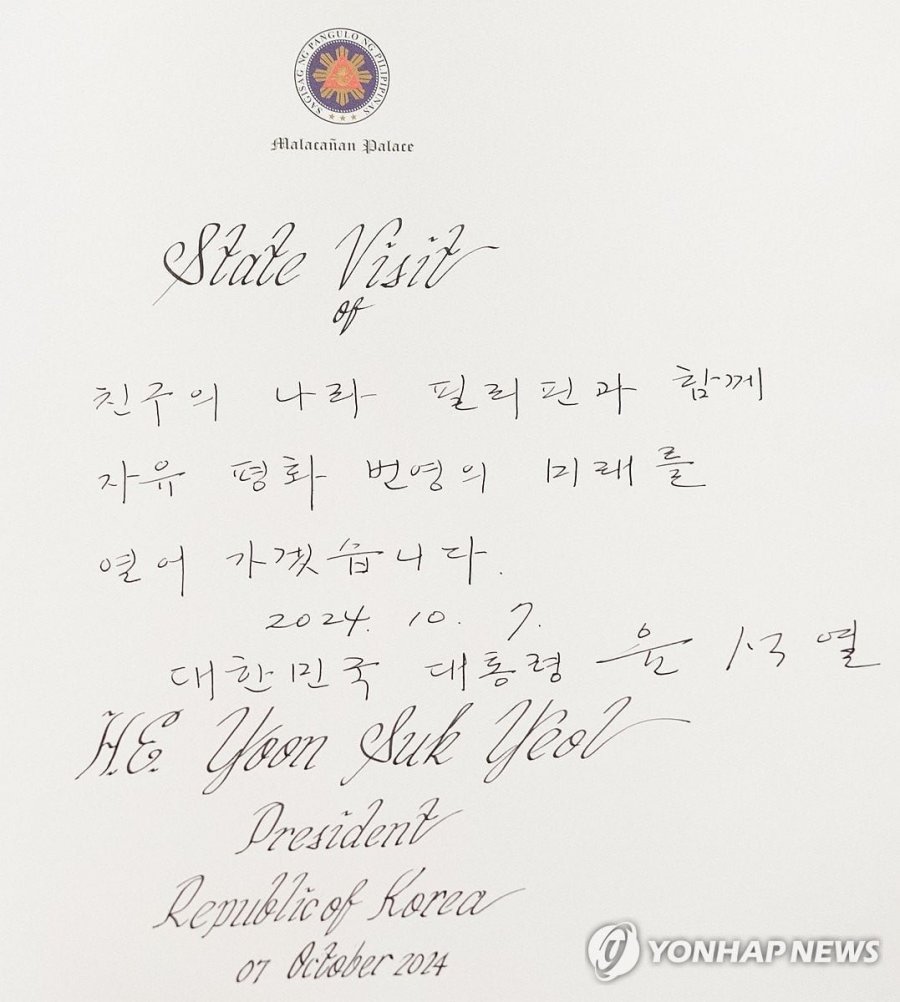 SAGISAG NG PANGULO NG PILIPINAS
Malacañan Palace
State Visit
of
친구의 나라 필리핀과 함께
자유 평화 번영의 미래를
열어 가겠습니다.
2024. 10. 7.
대한민국 대통령 윤석열
H.E. Yoon Suk Yeol
President
Republic of Korea
07 October 2024
YONHAP NEWS